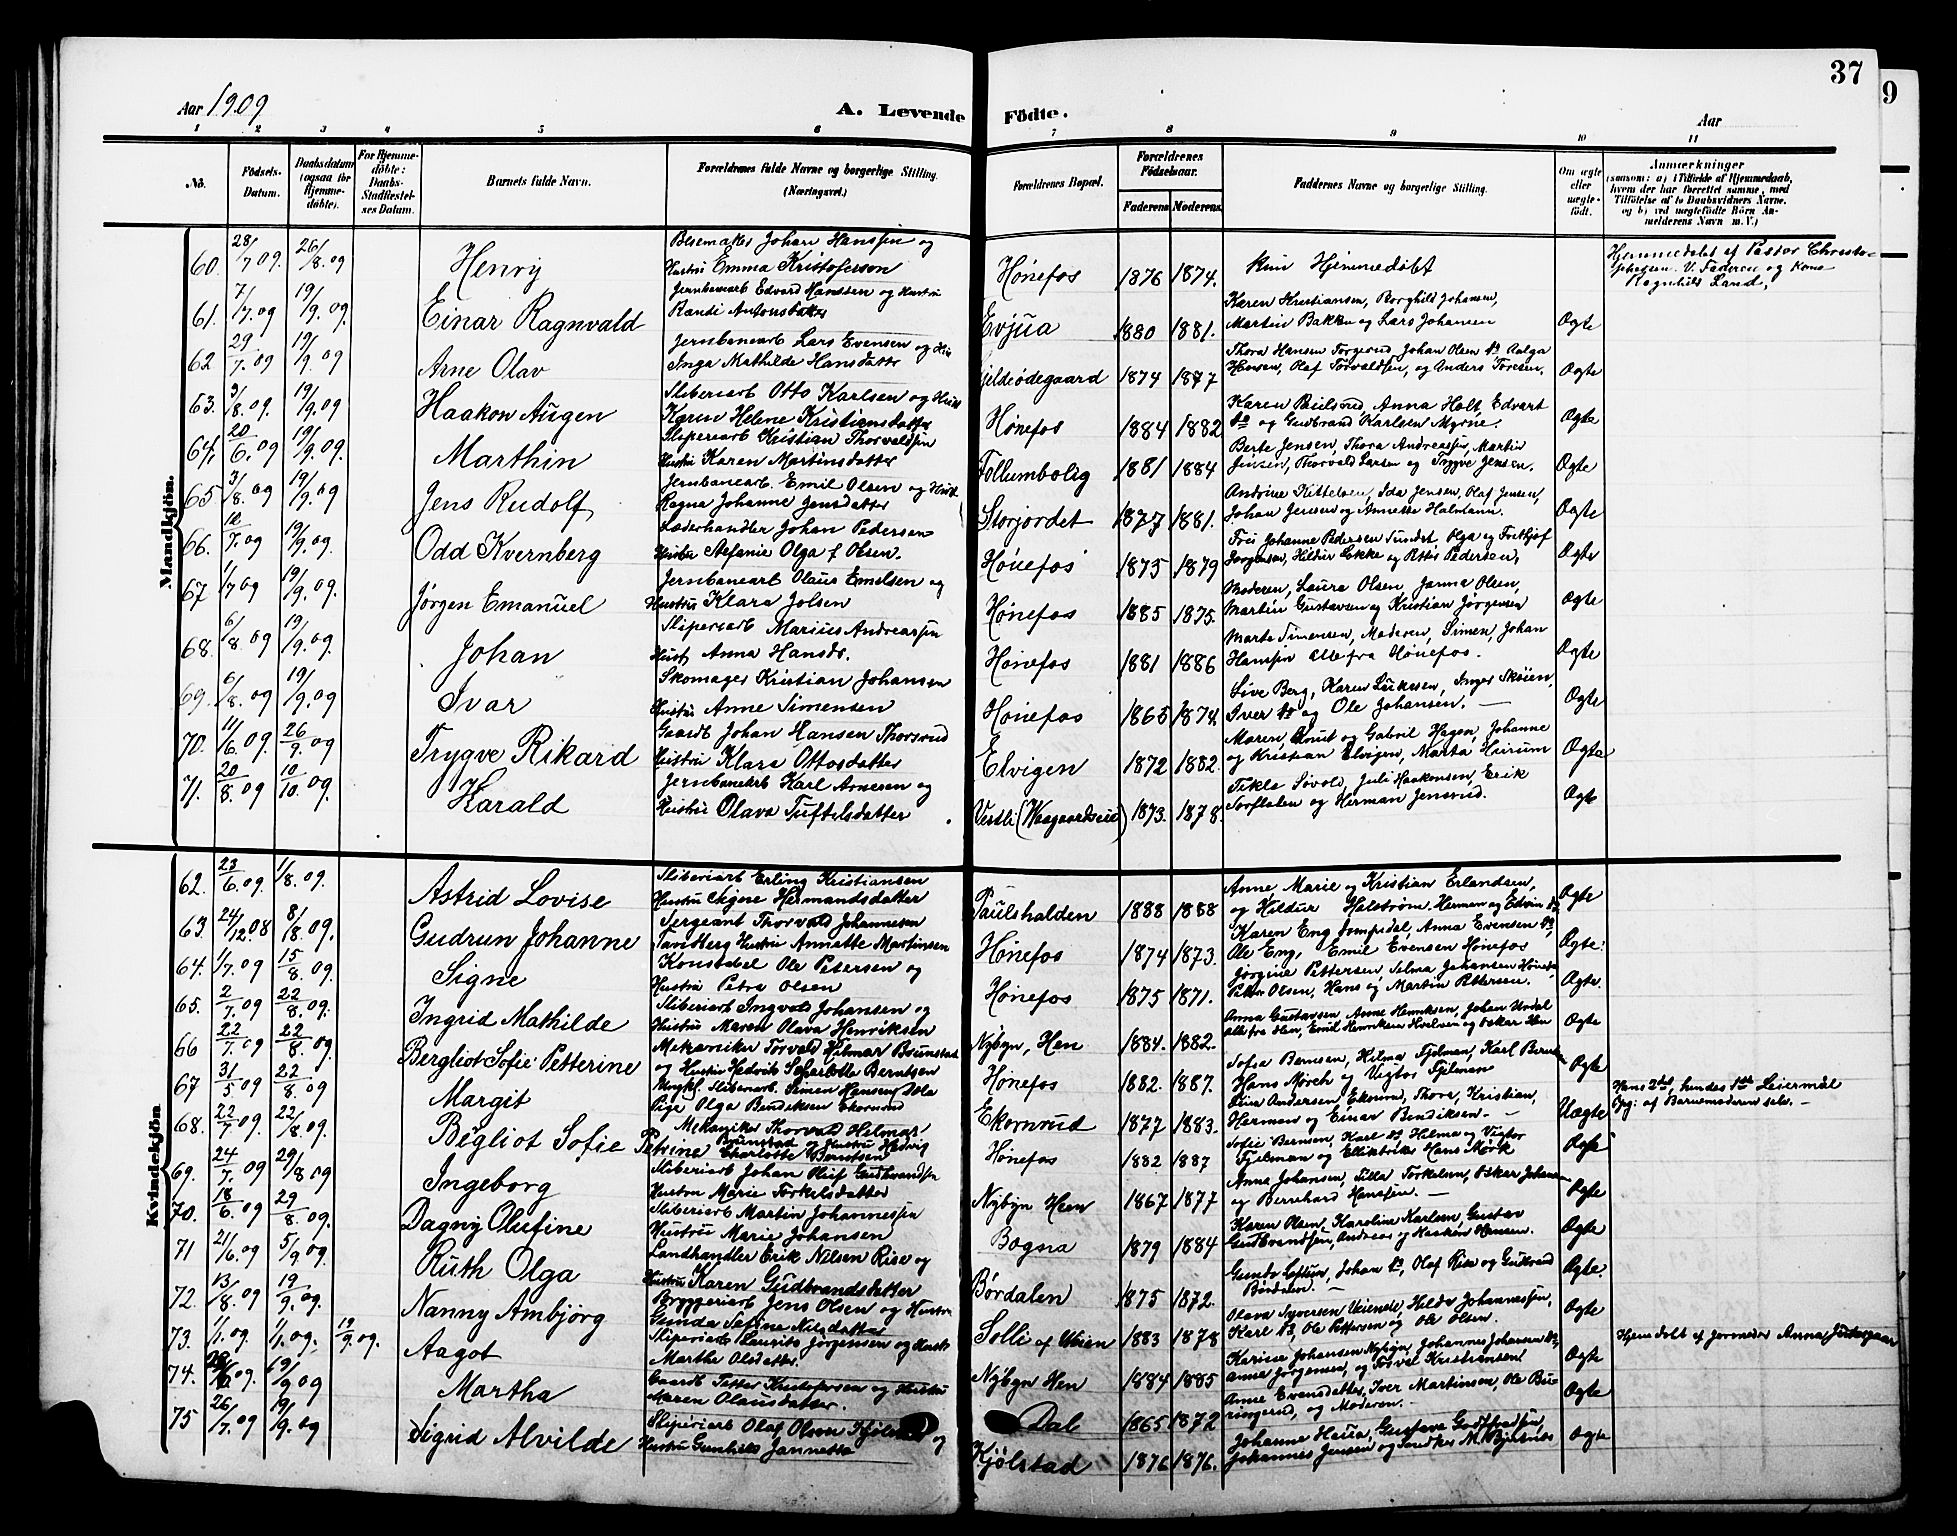 37
9
Aar 1909
A. Levende Födte.
Aar
1 2 3 4 5 6 7 8 9 10 11
No. Födsels-Datum. Daabsdatum (ogsaa for Hjemme-döbte). For Hjemme-döbte: Daabs-Stadfæstel-ses Datum. Barnets fulde Navn. Forældrenes fulde Navne og borgerlige Stilling (Næringsvei.) Forældrenes Bopæl. Forældrenes Födselsaar. Faderens Moderens. Faddernes Navne og borgerlige Stilling. Om ægte eller uægte-födt. Anmærkninger (saasom: a) i Tilfælde af Hjemmedaab, hvem der har forrettet samme, med Tilföielse af to Daabsvidners Navne, og b) ved uægtefödte Börn An-melderens Navn m. V.)
Mandkjön.
60. 28/7 09. 26/8. 09 Henry Johan Hanssen og
Hustru Emma Kristofersen Hønefos 1876 1874. Kun Hjemmedøbt Hjemmedøbt af Pastor
V. Faderen og Kone
Ragnhild Land,
61. 7/7. 09 19/9. 09. Einar Ragnvald Jernbanearb Edvard Hanssen og Hustru
Randi Antonsdatter Evjua 1880 1881. Karen Kristiansen, Borghild Johansen,
Martin Bakken og Lars Johansen Ægte
62 29/7. 09 19/9. 09 Arne Olav Jernbanearb Lars Evensen og Hus
Inga Mathilde Hansdatter Gjeldeødegaard 1874 1877 Thora Hansen Torgerud, Johan Olsen
Olaf Torvaldsen, og Anders Toresen. Ægte
63. 3/8. 09. 19/9. 09 Haakon Augen Sliberiarb Otto Karlsen og Hust
Karen Helene Kristiansdatter Hønefos 1884 1882 Karen Paulsrud, Anna Holt, Edvart
do og Gudbrand Karlsen Myrne. Ægte
64. 20/6. 09 19/9. 09. Marthin Sliperiarb Kristian Thorvaldsen
Hustru Karen Martinsdatter Follumbolig 1881 1884 Berte Jensen, Thora Andreassen, Martin
Jensen, Thorvald Larsen og Trygve Jensen. Ægte
65 3/8. 09 19/9. 09 Jens Rudolf Jernbanearb Emil Olsen og Hust
Ragna Johanne Jensdatter Storjordet 1877 1881. Andrine Kittelsen, Ida Jensen, Olaf Jensen,
Johan Jensen og Annette Halmann. Ægte
66. 12/7. 09 19/9. 09. Odd Kvernberg Læderhandler Johan Pedersen
Hustru Stefanie Olga f Olsen. Hønefos 1875 1879 Johanne Pedersen Sundst Olga og Fridtjof
Jørgensen, Hildur Løkke og Pettis Pedersen, Ægte
67 1/7 09 19/9. 09. Jørgen Emanuel Jernbanearb Olaus Emilsen og
Hustru Klara Jolsen Hønefos 1885 1875. Moderen, Laura Olsen, Janna Olsen,
Martin Gustavsen og Kristian Jørgensen Ægte
68. 6/8. 09 19/9. 09. Johan Sliperiarb Marius Andreassen
Hust Anna Hansdr. Hønefos 1881 1886 Marte Simensen, Moderen, Simen, Johan
Hanssen alle fra Hønefos. Ægte
69. 6/8. 09 19/9. 09 Ivar Skomager Kristian Johansen
Hustru Anne Simensen Hønefos 1865 1874. Live Berg, Karen Lukesen, Inger Skøien,
Iver do og Ole Johansen. — Ægte
70. 11/6. 09. 26/9. 09 Trygve Rikard Gaardb Johan Hansen Thorsrud
Hustru Klara Ottosdatter Elvigen 1872 1882. Maren, Knut og Gabriel Hagen, Johanne
og Kristian Elvigen, Marta Heirum Ægte
71. 20/8. 09 10/10. 09. Harald Jernbanearb Karl Arnesen og
Hustru Olava Tuftelsdatter Vestli (Waagaardseie) 1873. 1878. Tekle Søvold, Juli Haakonsen, Erik
Torflaten og Herman Jensrud. Ægte
Kvindekjön
62. 23/6. 09. 1/8. 09. Astrid Lovise Sliberiarb Erling Kristiansen
Hustru Signe Hermandsdatter Paulshalden 1888 1888 Anne Marie og Kristian Erlandsen,
og Hildur Halstrøm. Herman og Edvin do, Ægte
63. 24/12. 08 8/8. 09. Gudrun Johanne Sergeant Thorvald Johannesen
Tandberg Hustru Annette Martinsen Hønefos 1874 1873. Karen Eng Anna Evensen do,
Ole Eng, Emil Evensen Hønefos Ægte.
64. 1/7. 09 15/8. 09. Signe Konstabel Ole Petersen og
Hustru Petra Olsen Hønefos 1875 1871. Jørgine Pettersen, Selma Johansen Hønefos
Petter Olsen, Hans og Martin Pettersen. Ægte.
65. 2/7. 09 22/8. 09. Ingrid Mathilde Sliberiarb Ingvald Johansen og
Hustru Maren Olava Henriksen Nybyn, Hen 1884. 1882. Anna Gustavsen, Anne Henriksen, Johan
alle fra Hen, Emil Henriksen og Oskar Hen Ægte
66 22/7. 09 22/8. 09. Bergliot Sofie Petterine Mekaniker Torvald Hilmar Brunstad
og Hustru Hedvik Scharlotte Berntsen Hønefos 1882. 1887. Sofia Berntsen, Hilma Fjelman, Karl Berntsen
Hans Mörch og Vigtor Fjelman Ægte
67 31/5 09 22/8. 09 Margit Ungk. Slibeniarb. Simen Hansen
Pige Olga Bendiksen Ekornrud Ekornrud 1877 1883. Andersen Ekornrud, Thora, Kristian,
Herman og Einar Bendiksen. — Uægte Hans 2det, hendes 1ste Leiermål
Opg: af Barnemoderen selv. —
68. 22/7. 09. 22/8. 09. Begliot Sofie Petrine Mekaniker Thorvald Hilmar
Brunstad og Hustru Hedvig
Charlotte Berntsen Hønefos 1882 1887 Sofie Berntsen, Karl do Hilma og Vigtor
Fjelman og Hans Mørk Ægte
69. 24/7. 09 29/8 09 Ingeborg Sliberiarb Johan Oluf Gudbrandsen
Hustru Marie Torkelsdatter Nybyn Hen 1867 1877 Anna Johansen, Tilla Torkelsen, Oskar Johansen
og Bernhard Hanssen. — Ægte
70. 18/6. 09 29/8. 09. Dagny Olufine Sliberiarb Martin Johannesen
Hustru Marie Johansen Bogna 1879 1884 Karen Olsen, Karoline Karlsen, Gustav
Gudbrandsen, Andreas og Haakon Hansen. Ægte
71 21/6. 09 5/9. 09. Ruth Olga Landhandler Erik Nilsen Rise og
Hustru Karen Gudbrandsdatter Børdalen 1875 1872. Gunda Loftun, Johan do, Olaf Rise og Gudbrand
Børdalen. — Ægte.
72. 13/8. 09 19/9. 09. Nanny Ambjørg Bryggeriarb Jens Olsen og Hustru
Gunda Sefine Nilsdatter Solli af Veien 1883 1878 Olava Syversen Veiende, Hilda Johannessen,
Karl do, Ole Pettersen og Ole Olsen. Ægte
73. 1/1. 09. 1/1. 09. 19/9. 09. Aagot Sliperiarb Laurits Jørgensen og Hust
Marthe Olsdatter. Nybyn Hen 1884 1885 Karine Johansen Nybyn, Johanne Johansen do,
Anne Jørgensen, og Torval Kristiansen Ægte Hjemedøbt af Jormoder Anna
74. 09. 19/9 09 Martha Gaardb Petter Kristofersen og Hustru
Maren Olausdatter. Dal 1865 1872 Anne Evensdatter, Iver Martinsen, Ole Bu-
ringerud, og Moderen. Ægte
75 26/7. 09 19/9. 09 Sigrid Alvilde Sliperiarb Olaf Olsen og
Hustru Gunhild Jannette Kjølstad 1876 1876. Johanne Haua, Gustava Godtfredsen,
Johannes Jensen og Ægte